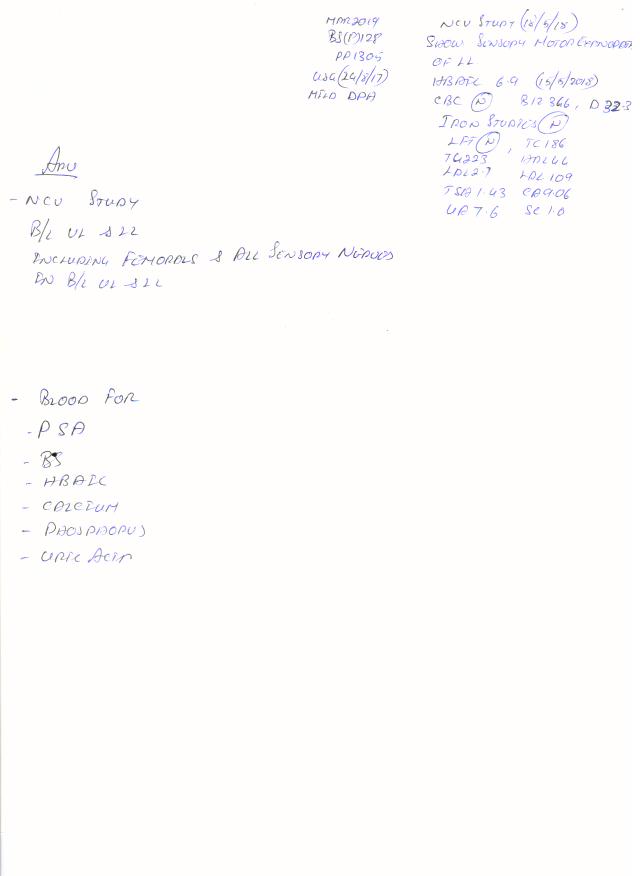 MAR 2019
BS(F) 128
PP 130
USG (24/8/17)
MILD
NCV STUDY (18/5/18)
SHOW SENSORY MOTOR
OF LL
HBAIC 6.9 (15/5/2018)
CBC (N) B12 366, D 32.3
IRON STUDIES (N)
LFT (N), TC 186
TG 223 HDL 44
LDL 109
TSH 1.43 CA 9.06
UA 7.6 SC 1.0
ADV
- NCV STUDY
B/L UL & LL
INCLUDING FEMORALS & ALL SENSORY NERVES
IN B/L UL & LL
- BLOOD FOR
- PSA
- BS
- HBAIC
- CALCIUM
- PHOSPHORUS
- URIC ACID